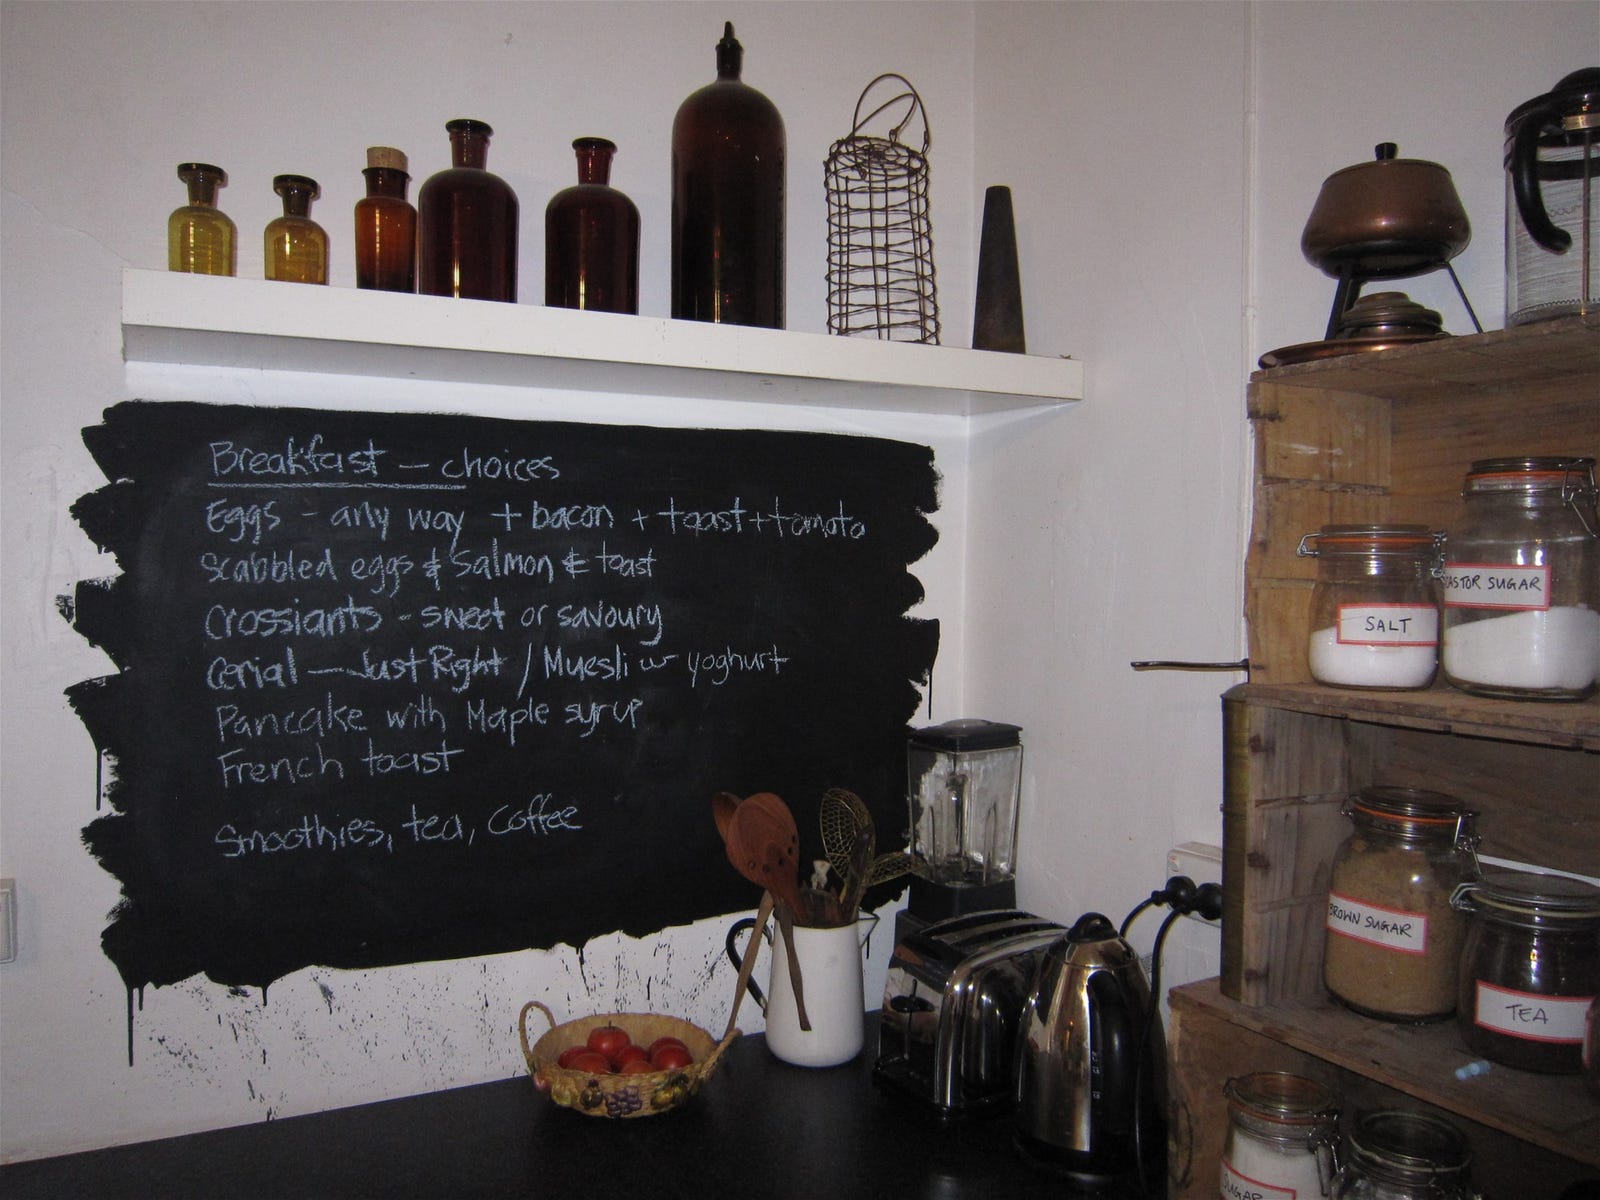 Breakfast - choices
Eggs - any way + bacon + toast + tomato
Scabbled eggs & Salmon & toast
Crossiants - sweet or savoury
Cerial - Just Right / Muesli w yoghurt
Pancake with Maple syrup
French toast
Smoothies, tea, coffee
CASTOR SUGAR
SALT
BROWN SUGAR
TEA
SUGAR